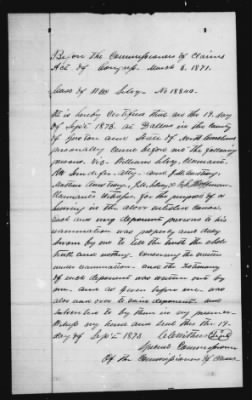 Before The Commissioners of Claims
Act of Congress March 3, 1871.
Case of Wm Sibry. No 18840.
It is hereby Certified that on the 19. day
of Sept. 1873. at Dallas in the County
of Gaston and State of North Carolina
personally came before me the following
persons. viz. William Sibry, Claimant.
Atty. and
Claimants Witnesses, for the purpose of a
hearing in the above entitled cause.
Each and every deponent previous to his
examination was properly and duly
sworn by me to tell the truth the whole
truth and nothing concerning the matter
under examination. and the testimony
of each deponent was written out by
me, and as given before me, was
also read over to each deponent and
subscribed to by them in my presence.
Witness my hand and seal this the 19.
day of Sept. 1873
Special Commissioner
Of the Commissioners of Claims